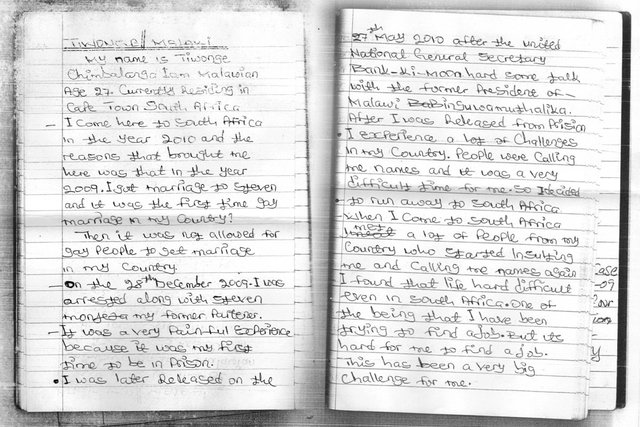 TIWONGE MALAWI
My name is Tiwonge
Chimbalanga I am Malawian
Age 27. Currently Residing in
Cape Town South Africa
- I came here to South Africa
in the year 2010 and the
reasons that brought me
here was that in the year
2009. I got marriage to Steven
and it was the first time gay
marriage in my country?
Then it was not allowed for
gay People to get marriage
in my Country.
- On the 28th December 2009. I was
arrested along with Steven
monjeza my former Partener.
- It was a very Painful Experience
because it was my first
time to be in Prison.
• I was later Released on the
27th May 2010 after the united
National General Secretary
Bank-Ki-Moon hard some talk
with the former President of-
Malawi Bobinguwamuthalika.
After I was Released from Prison
• I experience a lot of Challenges
In my Country. People were Calling
me names and it was a very
difficult time for me. So I decided
• to run away to South Africa
when I Come to South Africa
meet a lot of People from my
Country who started Insulting
me and Calling me names again
I found that life hard difficult
even in South Africa. One of
the being that I have been
trying to find a Job. But its
hard for me to find a Job.
This has been a very big
Challenge for me.